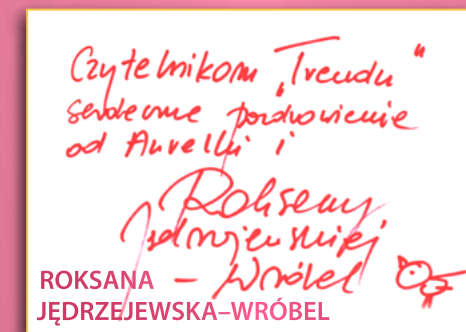 Czytelnikom „Trendu"
serdeczne pozdrowienie
od Aurelki i
Roksany
Jędrzejewskiej
- Wróbel
ROKSANA
JĘDRZEJEWSKA–WRÓBEL